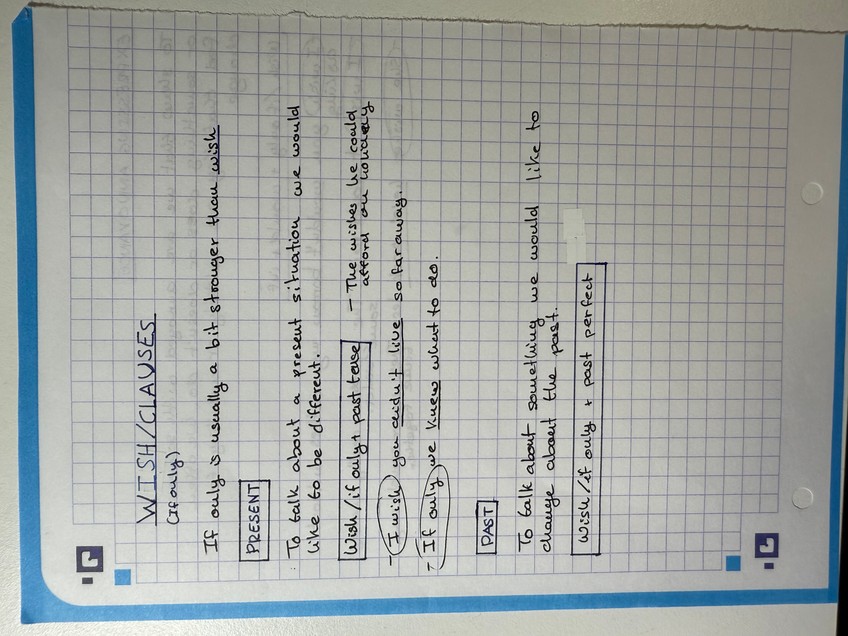 WISH/CLAUSES
(If only)
If only is usually a bit stronger than wish
PRESENT
To talk about a present situation we would
like to be different.
Wish/if only + past tense - The wishes he could
afford an holiday
- I wish you didn't live so far away.
- If only we knew what to do.
PAST
To talk about something we would like to
change about the past.
Wish/if only + past perfect